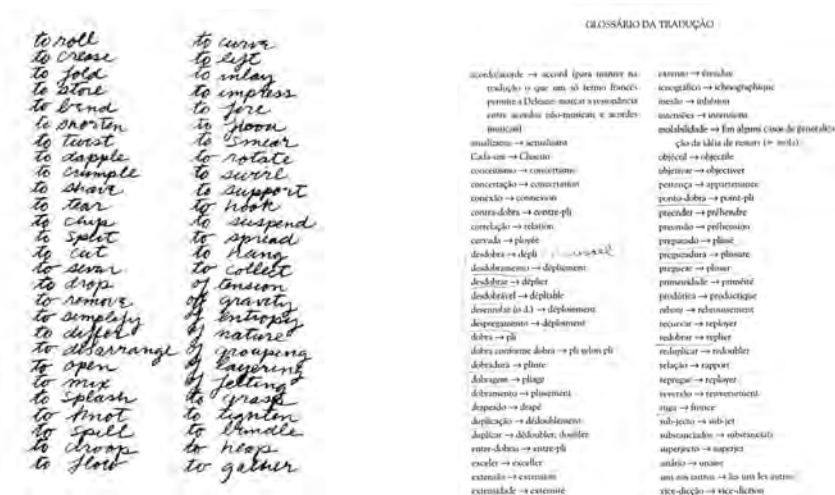 to roll
to crease
to fold
to store
to bend
to shorten
to twist
to dapple
to crumple
to shave
to tear
to chip
to split
to cut
to sever
to drop
to remove
to simplify
to differ
to disarrange
to open
to mix
to splash
to knot
to spill
to droop
to flow
to curve
to lift
to inlay
to impress
to fire
to flood
to smear
to rotate
to swirl
to support
to hook
to suspend
to spread
to hang
to collect
of tension
of gravity
of entropy
of nature
of grouping
of layering
of felting
to grasp
to tighten
to bundle
to heap
to gather
GLOSSÁRIO DA TRADUÇÃO
acordo/acorde → accord (para manter na
tradução o que um só termo francês
permite a Deleuze: marcar a ressonância
entre acordos não-musicais e acordes
musicais)
atualizante → actualisant
Cada-um → Chacun
concertismo → concertisme
concertação → concertation
conexão → connexion
contra-dobra → contre-pli
correlação → relation
curvada → ployée
desdobra → dépli
desdobramento → dépliement
desdobrar → déplier
desdobrável → dépliable
desenrolar (o d.) → déploiement
despregamento → déploiement
dobra → pli
dobra conforme dobra → pli selon pli
dobradura → pliure
dobragem → pliage
dobramento → plissement
drapeado → drapé
duplicação → dédoublement
duplicar → dédoubler, doubler
entre-dobra → entre-pli
exceler → exceller
extensão → extension
extensidade → extensité
extenso → étendue
icnográfico → ichnographique
inesão → inhésion
intensões → intensions
molabilidade → Em alguns casos de generaliza-
ção da idéia de ressort (= mola)
objéctil → objectile
objetivar → objectiver
pertença → appartenance
ponto-dobra → point-pli
preender → préhendre
preensão → préhension
pregueado → plissé
pregueadura → plissure
preguear → plisser
primeiridade → priméité
prodútica → productique
recurvar → reployer
redobrar → replier
reduplicar → redoubler
relação → rapport
repregar → reployer
reversão → renversement
ruga → fronce
sub-jecto → sub-jet
substanciados → substanciats
superjecto → superjet
unário → unaire
uns aos outros → les uns les autres
vice-dicção → vice-diction